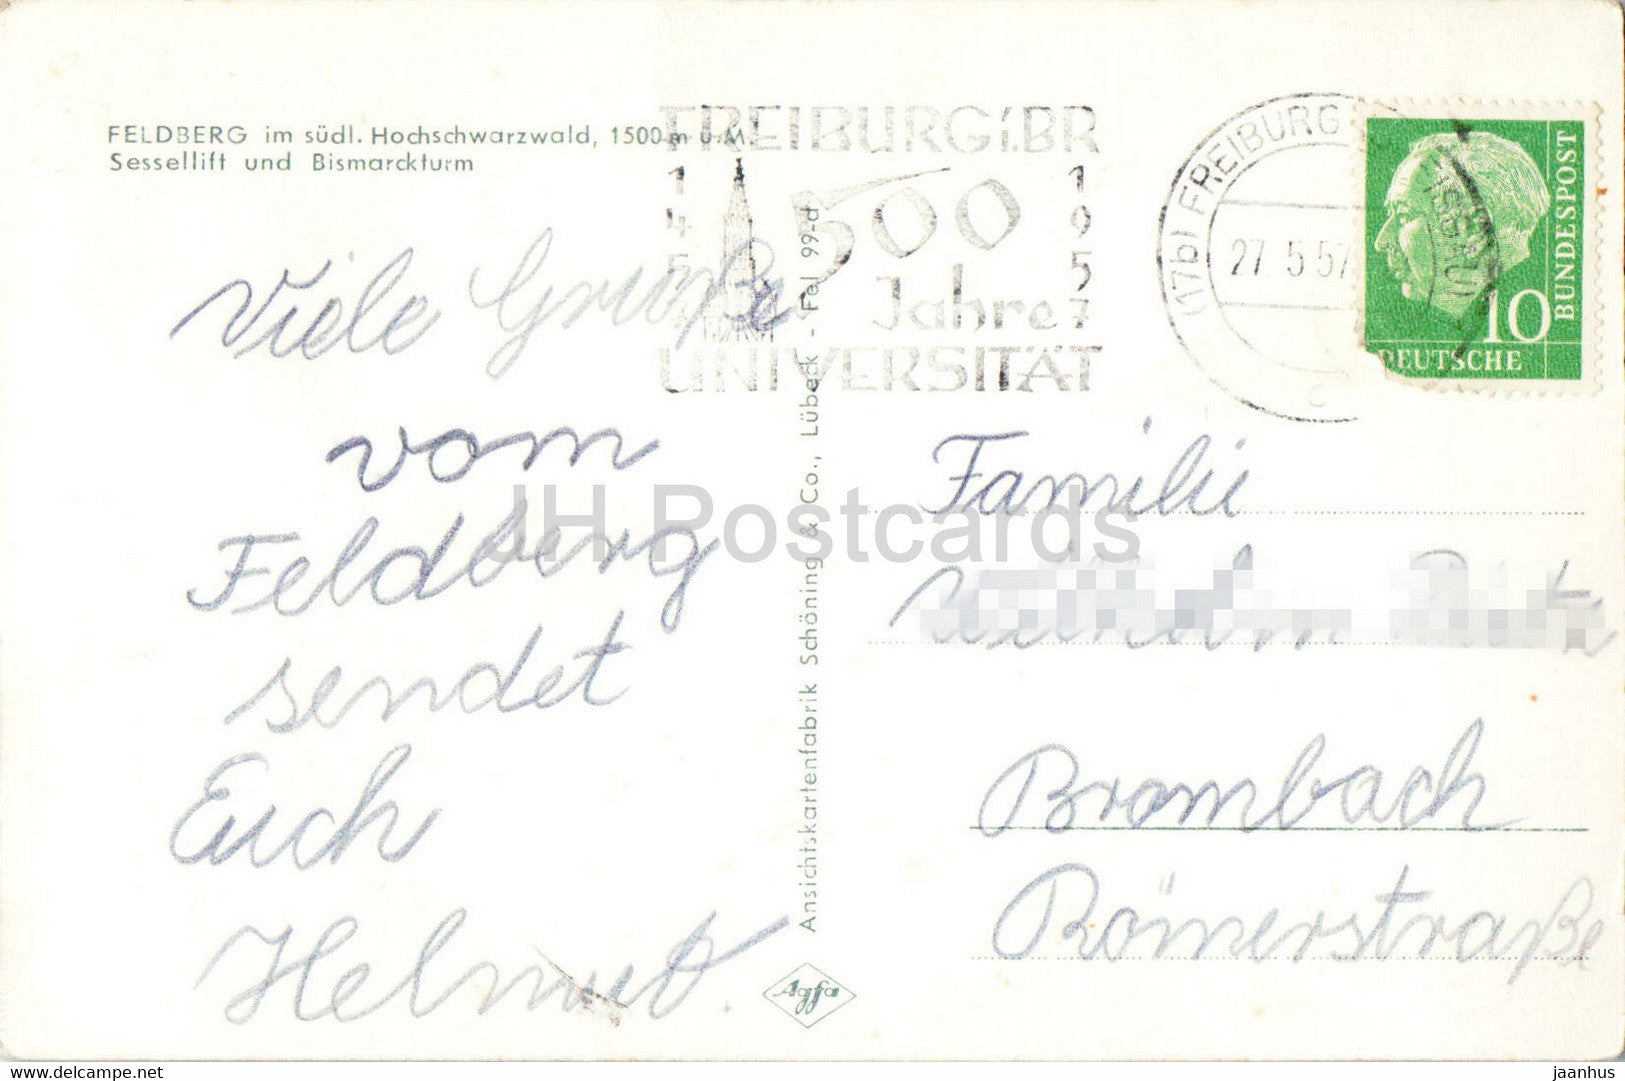 FELDBERG im südl. Hochschwarzwald, 1500 m ü. M.
Sessellift und Bismarckturm
FREIBURG i. BR
1457
1957
500
Jahre
UNIVERSITÄT
(17b) FREIBURG
27.5.57
10
DEUTSCHE
BUNDESPOST
Viele Grüße
vom
Feldberg
sendet
Euch
Helmut.
Ansichtskartenfabrik Schöning & Co., Lübeck - Fel 99-d
Familie
Brombach
Römerstraße
Agfa
JH Postcards
hippostcard.com
jaanhus